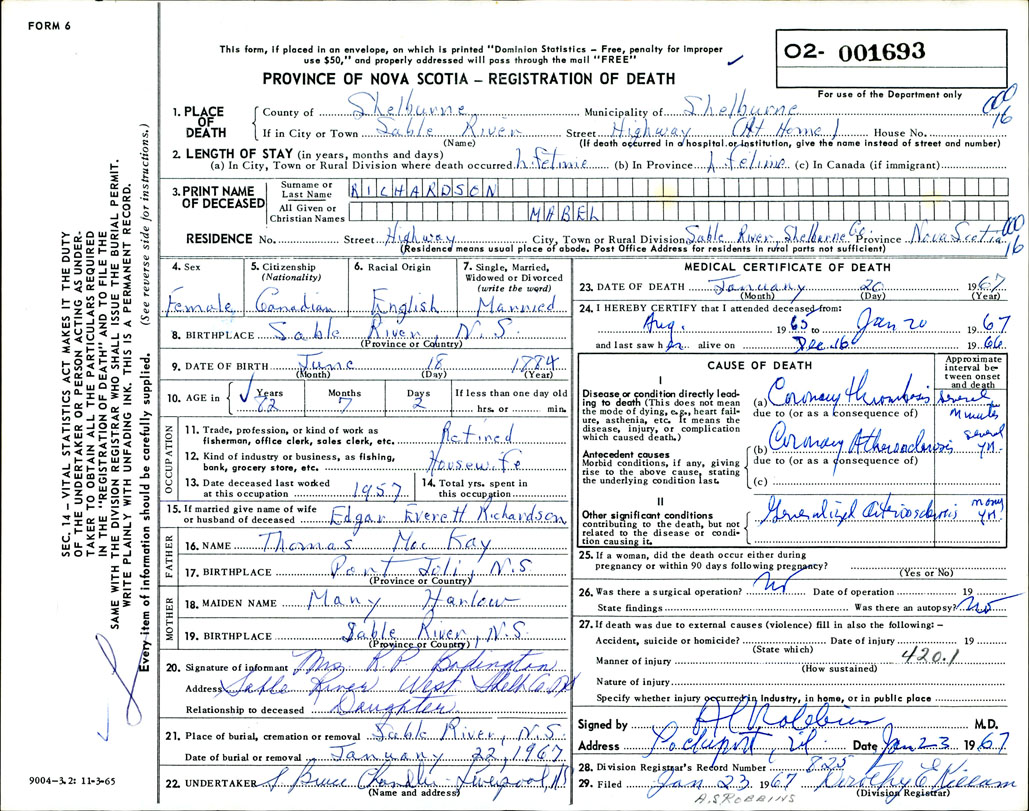 FORM 6
This form, if placed in an envelope, on which is printed "Dominion Statistics – Free, penalty for improper
use $50," and properly addressed will pass through the mail "FREE"
O2- 001693
For use of the Department only
PROVINCE OF NOVA SCOTIA – REGISTRATION OF DEATH
1. PLACE OF DEATH
County of Shelburne Municipality of Shelburne
000 16
If in City or Town Sable River Street Highway (At Home) House No.
(Name) (If death occurred in a hospital or institution, give the name instead of street and number)
2. LENGTH OF STAY (in years, months and days)
(a) In City, Town or Rural Division where death occurred Lifetime (b) In Province Lifetime (c) In Canada (if immigrant)
3. PRINT NAME OF DECEASED
Surname or Last Name RICHARDSON
All Given or Christian Names MABEL
RESIDENCE No. Street Highway City, Town or Rural Division Sable River, Shelburne Co. Province Nova Scotia
000 16
(Residence means usual place of abode. Post Office Address for residents in rural parts not sufficient)
4. Sex Female
5. Citizenship (Nationality) Canadian
6. Racial Origin English
7. Single, Married, Widowed or Divorced (write the word) Married
8. BIRTHPLACE Sable River, N.S.
(Province or Country)
9. DATE OF BIRTH June 18 1884
(Month) (Day) (Year)
10. AGE in Years Months Days If less than one day old
82 7 2 hrs. or min.
OCCUPATION
11. Trade, profession, or kind of work as fisherman, office clerk, sales clerk, etc. Retired
12. Kind of industry or business, as fishing, bank, grocery store, etc. Housewife
13. Date deceased last worked at this occupation 1957
14. Total yrs. spent in this occupation
15. If married give name of wife or husband of deceased Edgar Everett Richardson
FATHER
16. NAME Thomas MacKay
17. BIRTHPLACE Port Joli, N.S
(Province or Country)
MOTHER
18. MAIDEN NAME Mary Harlow
19. BIRTHPLACE Sable River, N.S.
(Province or Country)
20. Signature of informant Mrs. R.P.
Address Sable River West Shelb Co NS
Relationship to deceased Daughter
21. Place of burial, cremation or removal Sable River, N.S.
Date of burial or removal January 22, 1967
22. UNDERTAKER Bruce Chandler Liverpool, NS
(Name and address)
MEDICAL CERTIFICATE OF DEATH
23. DATE OF DEATH January 20 1967
(Month) (Day) (Year)
24. I HEREBY CERTIFY that I attended deceased from:
Aug. 1965 to Jan 20 1967
and last saw her alive on Dec. 16 1966
CAUSE OF DEATH
Approximate interval between onset and death
I
Disease or condition directly leading to death (This does not mean the mode of dying, e.g., heart failure, asthenia, etc. It means the disease, injury, or complication which caused death.)
(a) Coronary thrombosis several minutes
due to (or as a consequence of)
Antecedent causes
Morbid conditions, if any, giving rise to the above cause, stating the underlying condition last.
(b) Coronary Atherosclerosis several yr.
due to (or as a consequence of)
(c)
II
Other significant conditions
contributing to the death, but not related to the disease or condition causing it.
Generalized arteriosclerosis many yr.
25. If a woman, did the death occur either during pregnancy or within 90 days following pregnancy?
(Yes or No)
26. Was there a surgical operation? No Date of operation 19
State findings Was there an autopsy? No
27. If death was due to external causes (violence) fill in also the following: –
Accident, suicide or homicide? Date of injury 19
(State which)
Manner of injury 420.1
(How sustained)
Nature of injury
Specify whether injury occurred in Industry, in home, or in public place
Signed by M.D.
Address Lockeport, Date Jan 23 1967
28. Division Registrar's Record Number 825
29. Filed Jan. 23 1967 Dorothy E Killam
(Division Registrar)
A.S ROBBINS
SEC. 14 – VITAL STATISTICS ACT MAKES IT THE DUTY
OF THE UNDERTAKER OR PERSON ACTING AS UNDER-
TAKER TO OBTAIN ALL THE PARTICULARS REQUIRED
IN THE "REGISTRATION OF DEATH" AND TO FILE THE
SAME WITH THE DIVISION REGISTRAR WHO SHALL ISSUE THE BURIAL PERMIT.
WRITE PLAINLY WITH UNFADING INK. THIS IS A PERMANENT RECORD.
Every item of information should be carefully supplied. (See reverse side for instructions.)
9004-3.2: 11-3-65